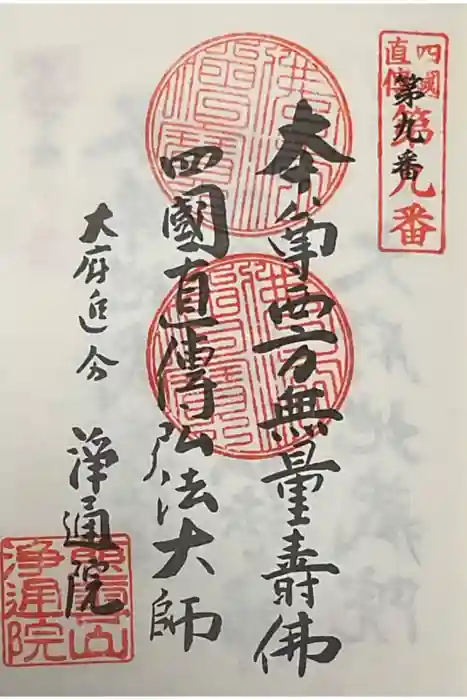 四國
直傳
第九番
第九番
本尊西方無量壽佛
四國直傳弘法大師
大府追分
淨通院
淨通院